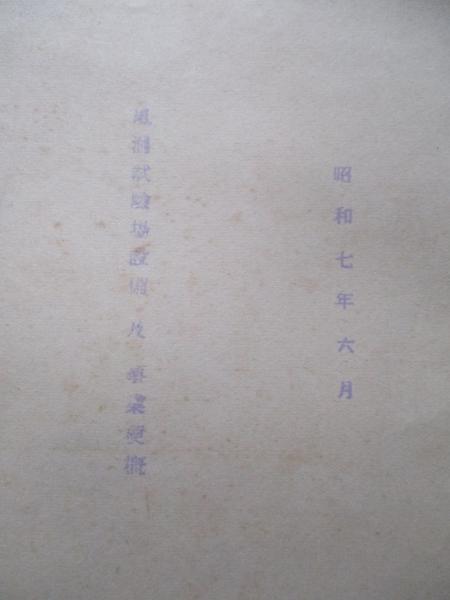 昭和七年六月
試験場設備及事業更概